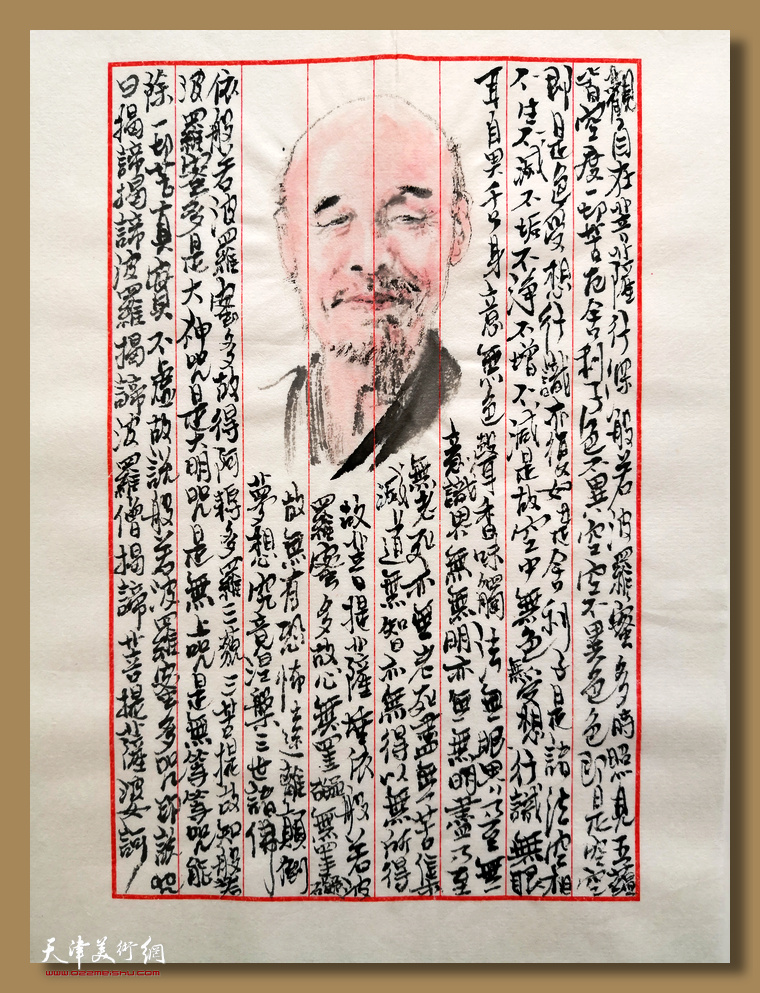 觀自在菩薩行深般若波羅蜜多時照見五蘊
皆空度一切苦厄舍利子色不異空空不異色色即是空空
即是色受想行識亦復如是舍利子是諸法空相
不生不滅不垢不净不增不減是故空中無色無受想行識無眼
耳鼻舌身意無色聲香味觸法無眼界乃至無
意識界無無明亦無無明盡乃至
無老死亦無老死盡無苦集
滅道無智亦無得以無所得
故菩提薩埵依般若波
羅蜜多故心無罣礙無罣礙
故無有恐怖遠離顛倒
夢想究竟涅槃三世諸佛
依般若波羅蜜多故得阿耨多羅三藐三菩提故知般若
波羅蜜多是大神咒是大明咒是無上咒是無等等咒能
除一切苦真實不虛故說般若波羅蜜多咒即說咒
曰揭諦揭諦波羅揭諦波羅僧揭諦菩提薩婆訶
天津美術網
www.022meishu.com